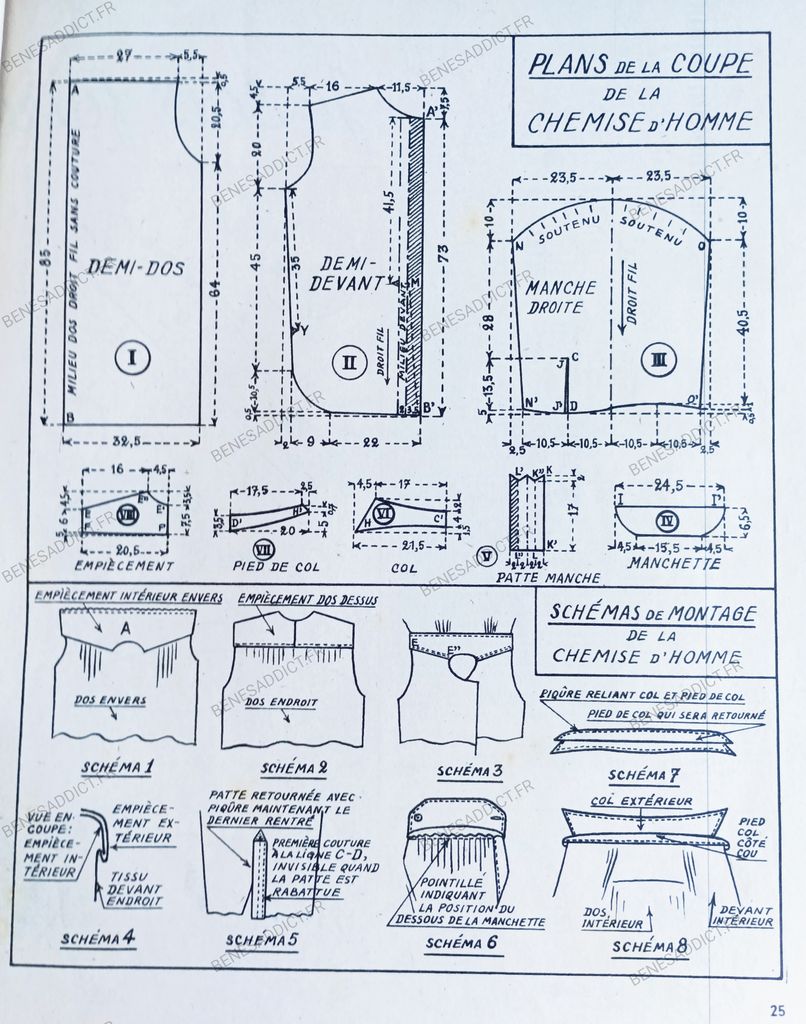 BENESADDICT.FR
PLANS DE LA COUPE
DE LA
CHEMISE D'HOMME
27
5,5
0,5
20,5
A
85
MILIEU DOS DROIT FIL SANS COUTURE
DEMI-DOS
I
64
B
32,5
5,5
16
11,5
4,5
A'
7,5
20
41,5
45
35
73
DEMI-
DEVANT
M
Y
II
DROIT FIL
MILIEU DEVANT
10,5
0,5
B'
2
9
22
23,5
23,5
10
10
SOUTENU
SOUTENU
N
O
MANCHE
DROITE
DROIT FIL
28
40,5
III
J
C
13,5
N'
J'
D
O'
5
1
2,5
10,5
10,5
10,5
10,5
2,5
16
4,5
4,5
6
5
E
E''
VIII
F
F
3,5
7,5
5
20,5
EMPIÈCEMENT
17,5
2,5
3,5
D'
H'
0,7
5
20
VII
PIED DE COL
4,5
17
VI
H
C'
2
4
1,5
21,5
COL
L'
K''
K
2
17
K'
V
PATTE MANCHE
24,5
I
I'
IV
6,5
4,5
15,5
4,5
MANCHETTE
SCHÉMAS DE MONTAGE
DE LA
CHEMISE D'HOMME
EMPIÈCEMENT INTÉRIEUR ENVERS
A
DOS ENVERS
SCHÉMA 1
EMPIÈCEMENT DOS DESSUS
DOS ENDROIT
SCHÉMA 2
E
E''
SCHÉMA 3
PIQÛRE RELIANT COL ET PIED DE COL
PIED DE COL QUI SERA RETOURNÉ
SCHÉMA 7
VUE EN
COUPE:
EMPIÈCE-
MENT IN-
TÉRIEUR
EMPIÈCE-
MENT EX-
TÉRIEUR
TISSU
DEVANT
ENDROIT
SCHÉMA 4
PATTE RETOURNÉE AVEC
PIQÛRE MAINTENANT LE
DERNIER RENTRÉ
PREMIÈRE COUTURE
A LA LIGNE C-D,
INVISIBLE QUAND
LA PATTE EST
RABATTUE
SCHÉMA 5
POINTILLÉ
INDIQUANT
LA POSITION DU
DESSOUS DE LA MANCHETTE
SCHÉMA 6
COL EXTÉRIEUR
PIED
COL
CÔTÉ
COU
DOS
INTÉRIEUR
DEVANT
INTÉRIEUR
SCHÉMA 8
25